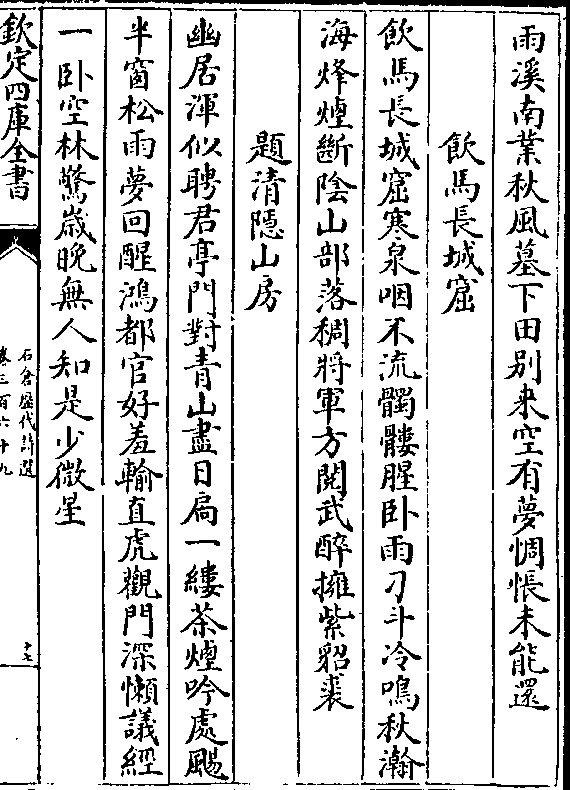 雨溪南業秋風墓下田别来空有夢惆悵未能還
飲馬長城窟
飲馬長城窟寒泉咽不流髑髏腥卧雨刁斗冷鳴秋瀚
海烽煙斷陰山部落稠將軍方閲武醉擁紫貂裘
題清隱山房
幽居渾似聘君亭門對青山盡日扃一縷茶煙吟處颺
半窗松雨夢回醒鴻都官好羞輸直虎觀門深懶議經
一卧空林驚歳晚無人知是少微星
欽定四庫全書
石倉歴代詩選
卷三百六十九
十七